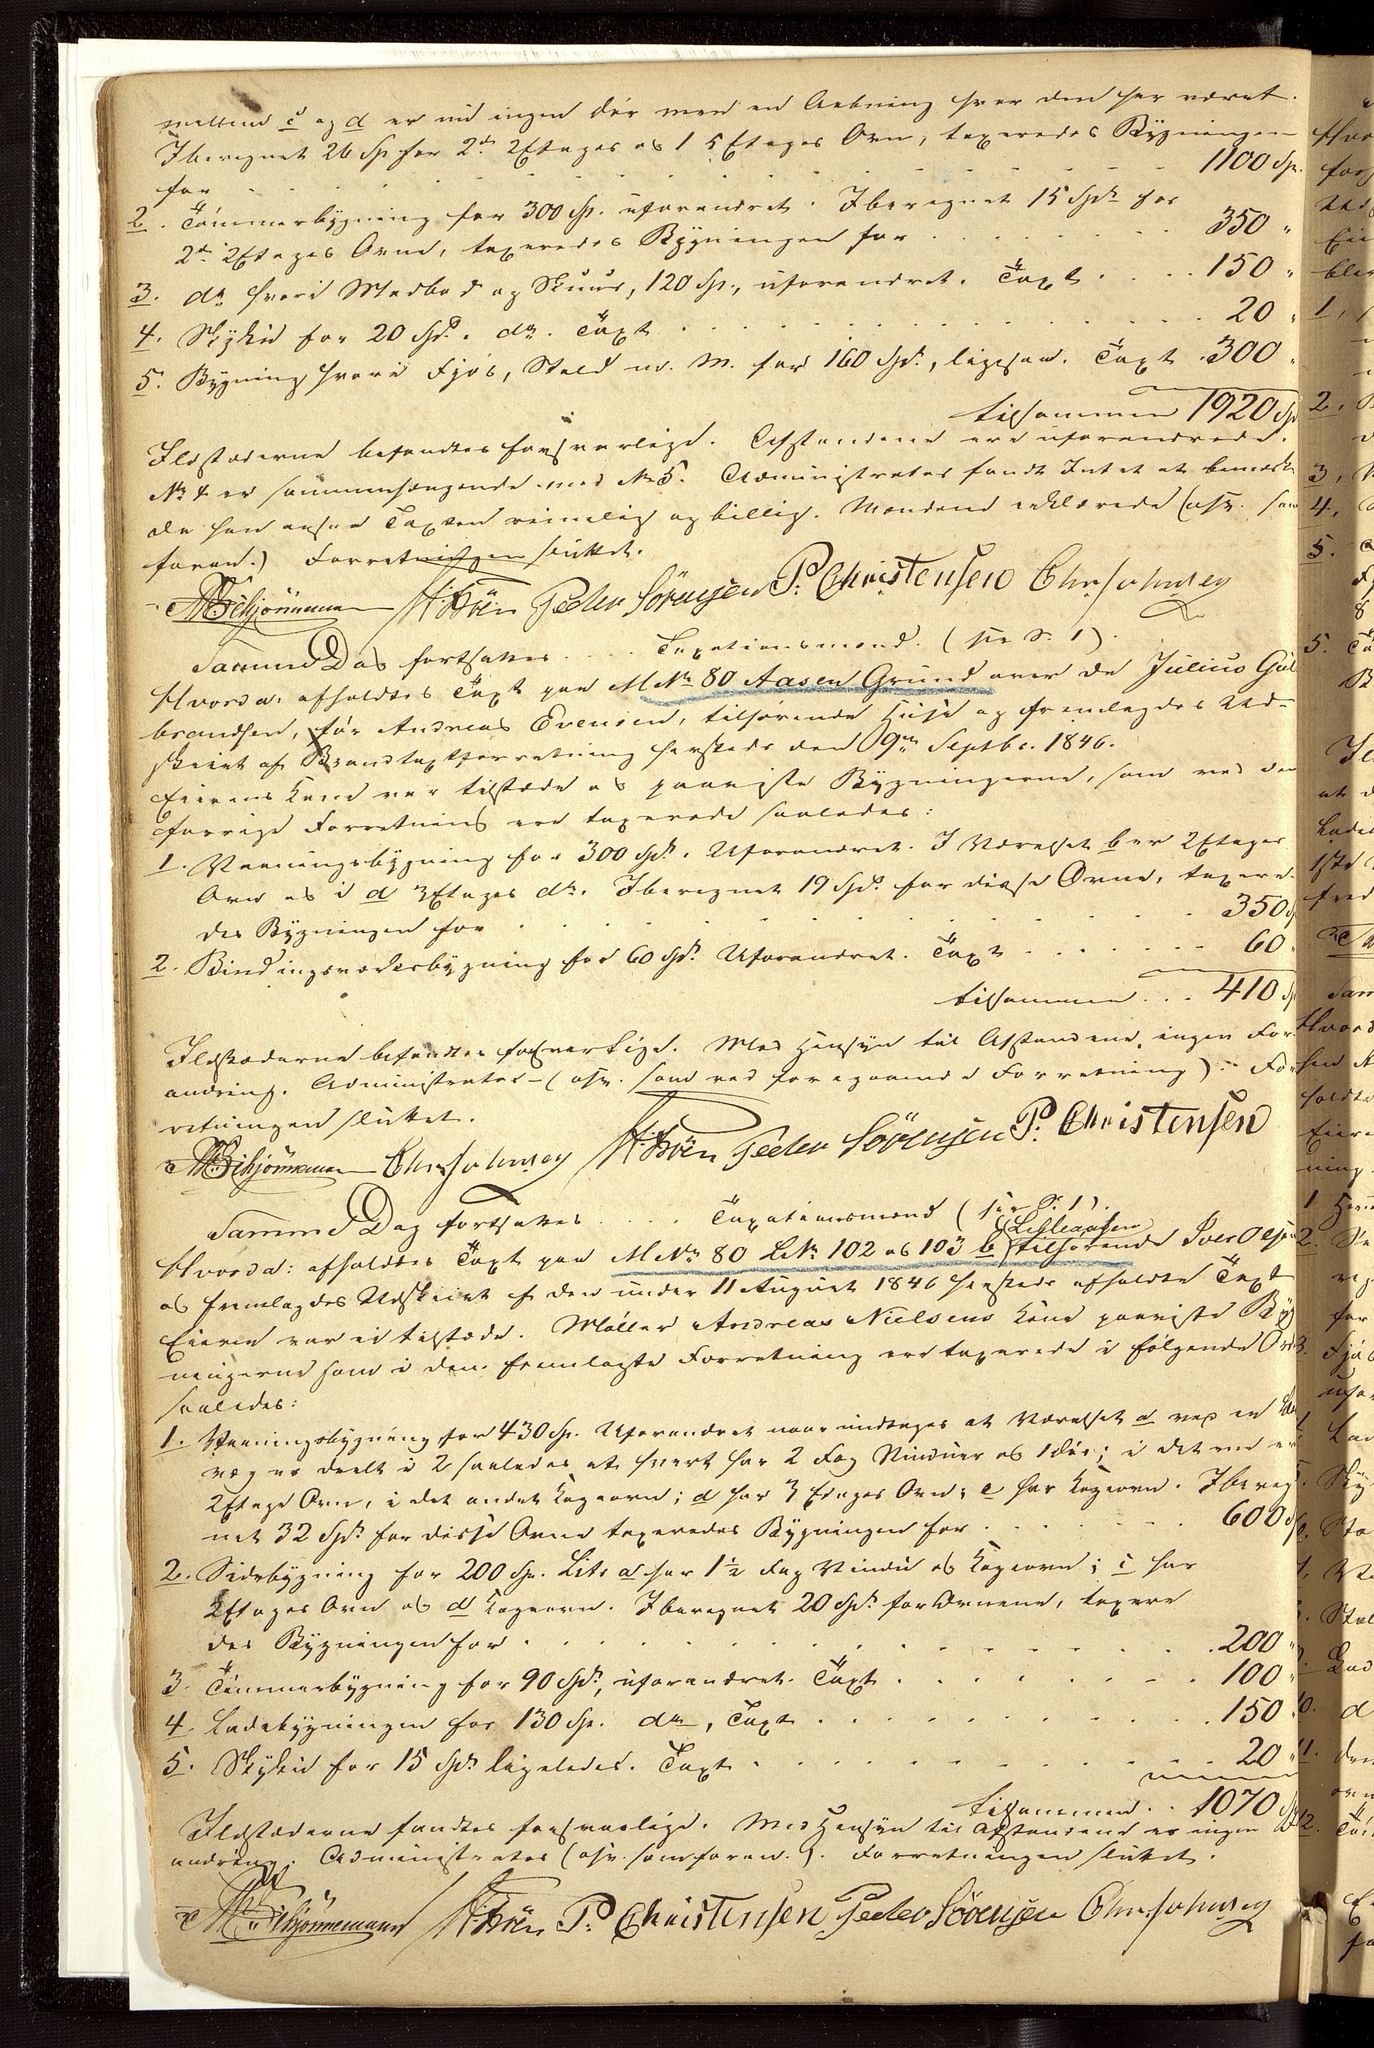 mellem c og d er nu ingen dör men en Aabning hvor den har været.
Iberegnet 26 Sp for 2de 2Etages og 1 5Etages Ovn, taxeredes Bygningen
for . . . . . . . . . 1100 Sp.
2. Tömmerbygning for 300 Sp. uforandret. Iberegnet 15 Spd for
2de 2Etages Ovne, taxeredes Bygningen for . . . . 350 "
3. do hvori Madbod og Skuur, 120 Sp., uforandret. Taxt . . . . 150 "
4. Skykid for 20 Spd. do. Taxt . . . . . . . 20 "
5. Bygning hvori Fjös, Stald m. M. for 160 Spd., ligesaa. Taxt . 300 "
tilsammen 1920 Sp
Ildstæderne befandtes forsvarlige. Afstandene ere uforandrede.
No 4 er sammenhængende med No 5. Administrator fandt Intet at bemærke
da han ansaa Taxten rimelig og billig. Mændene erklærede (osv. som
foran.) Forretningen sluttet.
Peder Sörensen P. Christensen Chr. Johnsen
Samme Dag fortsattes . . . . Taxationsmænd. (see S. 1).
Hvorda: afholdtes Taxt paa MNo 80 Aasen Grund over de Julius Gul
brandsen, för Andreas Evensen, tilhörende Huse og fremlagdes Ud-
skrivt af Brandtaxtforretning herstæds den 9de Septbr. 1846.
Eierens Kone var tilstæde og paaviste Bygningerne, som ved den
forrige Forretning ere taxerede saaledes:
1. Vaaningsbygning for 300 Spd. Uforandret. I Værelset b er 2Etages
Ovn og i d 3Etages do. Iberegnet 19 Spd. for disse Ovne, taxere-
des Bygningen for . . . . . . . 350 Sp
2. Bindingsværksbygning for 60 Spd. Uforandret. Taxt . . . . 60 "
tilsammen . . . 410 Sp
Ildstæderne befandtes forsvarlige. Med Hensyn til Afstandene, ingen For
andring. Administrator – (osv. som ved foregaaende Forretning) – For
retningen sluttet.
Chr. Johnsen Peder Sörensen P. Christensen
Samme Dag fortsattes . . . . Taxationsmænd (see S. 1).
Lilleaasen
Hvorda: afholdtes Taxt paa MNo 80 LNo 102 og 103 b tilhörende Iver Olsen
og fremlagdes Udskrivt af den under 11 August 1846 herstæds afholdte Taxt
Eieren var ei tilstæde. Möller Andreas Nielsens Kone paaviste Byg
ningerne som i den fremlagte Forretning ere taxerede i fölgende Ord
saaledes:
1. Vaaningsbygning for 430 Sp. Uforandret naar undtages at Værelset a ved en
væg er deelt i 2 saaledes at hvert har 2 Fag Vinduer og 1 dör; i det ene er
2Etage Ovn, i det andet Kogeovn; d har 3 Etages Ovn; e har Kogeovn. Ibereg
net 32 Spd. for disse Ovne taxeredes Bygningen for . . . . . 600 Sp
2. Sidebygning for 200 Sp. Litr a har 1½ Fag Vindu og Kogeovn; c har
2Etages Ovn og d Kogeovn. Iberegnet 20 Spd. for Ovnene, taxere
des Bygningen for . . . . . . . 200 "
3. Tömmerbygning for 90 Spd, uforandret. Taxt . . . . . . 100 "
4. Ladebygningen for 130 Sp. do, Taxt . . . . . . . 150
5. Skykid for 15 Spd. ligeledes. Taxt . . . . . . . 20 "
tilsammen . . 1070 Sp
Ildstæderne fandtes forsvarlige. Med Hensyn til Afstandene er ingen
andring. Administrator (osv. som foran.). Forretningen sluttet.
P. Christensen Peder Sörensen Chr. Johnsen